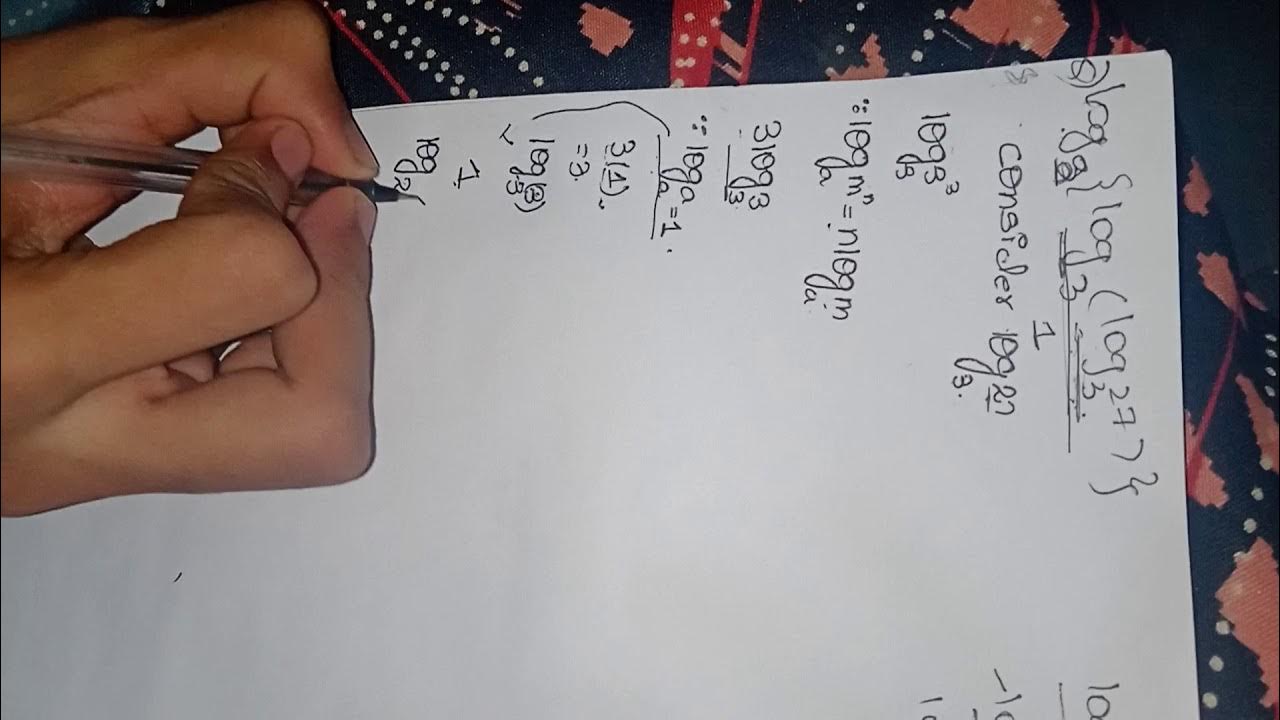 8) log₂{log₃(log₃27)}
1
consider log₃27
log₃3³
∵ logₐmⁿ = n logₐm
3log₃3
∵ logₐa = 1.
3(1).
= 3.
log₃(3)
1
log₂